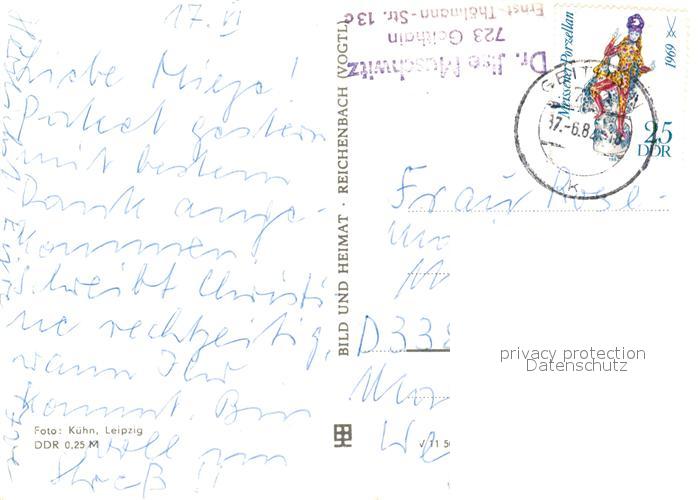 17. VI
Liebe Mieze!
Paket gestern
mit bestem
Dank ange-
kommen!
Schreibt Christi-
ne rechtzeitig,
wann Ihr
kommt. Bin
voll im
Streß!!
Foto: Kühn, Leipzig
DDR 0,25 M
BILD UND HEIMAT · REICHENBACH (VOGTL)
V 11 50
Dr. Ilse Muschwitz
723 Geithain
Ernst-Thälmann-Str. 13 c
Meissner Porzellan
1969
25
DDR
GEITHAIN
17.-6.8
Frau Rose-
D 338
privacy protection
Datenschutz